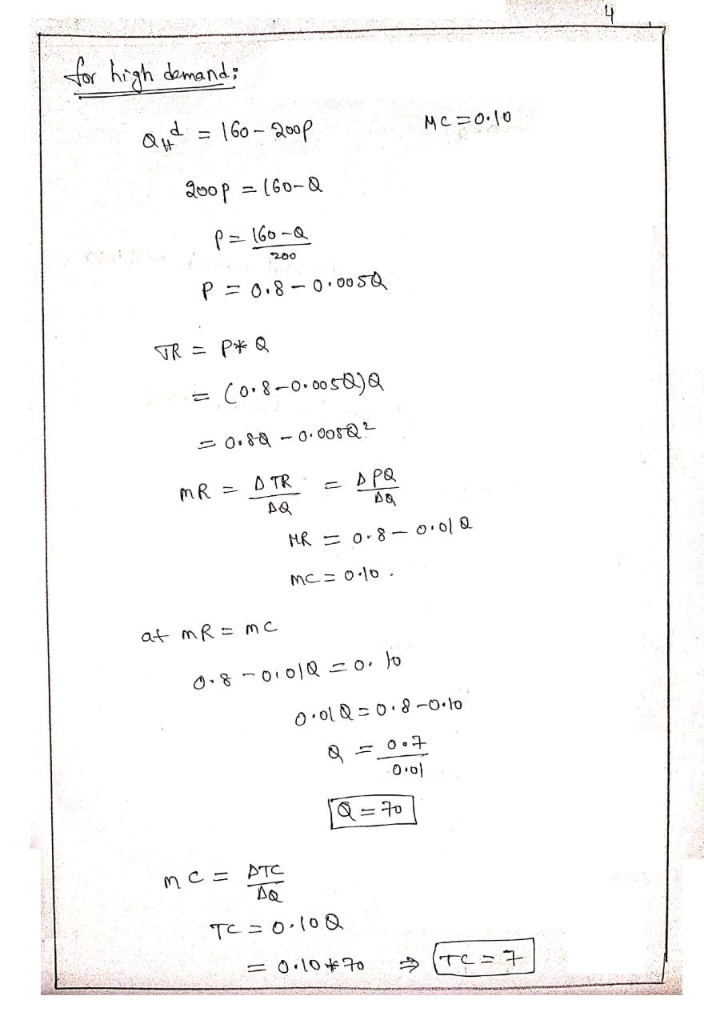 4
for high demand:
Q_H^d = 160 - 200P MC = 0.10
200P = 160 - Q
P = 160 - Q / 200
P = 0.8 - 0.005Q
TR = P * Q
= (0.8 - 0.005Q)Q
= 0.8Q - 0.005Q²
MR = ΔTR / ΔQ = ΔPQ / ΔQ
MR = 0.8 - 0.01Q
MC = 0.10.
at MR = MC
0.8 - 0.01Q = 0.10
0.01Q = 0.8 - 0.10
Q = 0.7 / 0.01
Q = 70
MC = ΔTC / ΔQ
TC = 0.10Q
= 0.10 * 70 ⇒ TC = 7